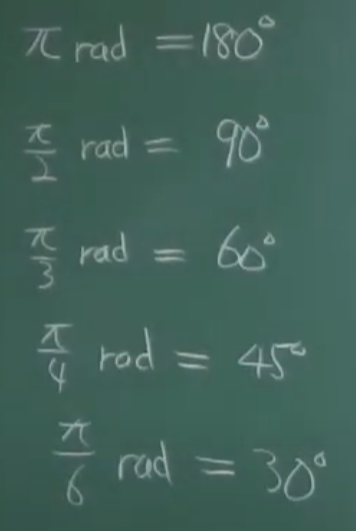 π rad = 180°
π/2 rad = 90°
π/3 rad = 60°
π/4 rad = 45°
π/6 rad = 30°